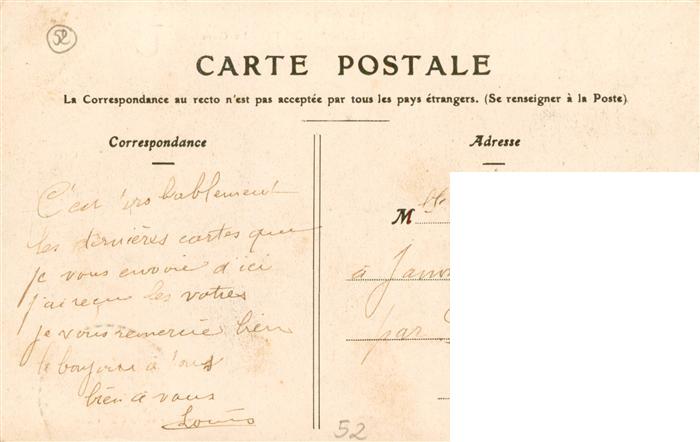 52
CARTE POSTALE
La Correspondance au recto n'est pas acceptée par tous les pays étrangers. (Se renseigner à la Poste)
Correspondance
C'est probablement
les dernières cartes que
je vous envoie d'ici
j'ai reçu les votres
je vous remercie bien
le bonjour à tous
bien à vous
Louis
Adresse
M lle
à Janv
par
52